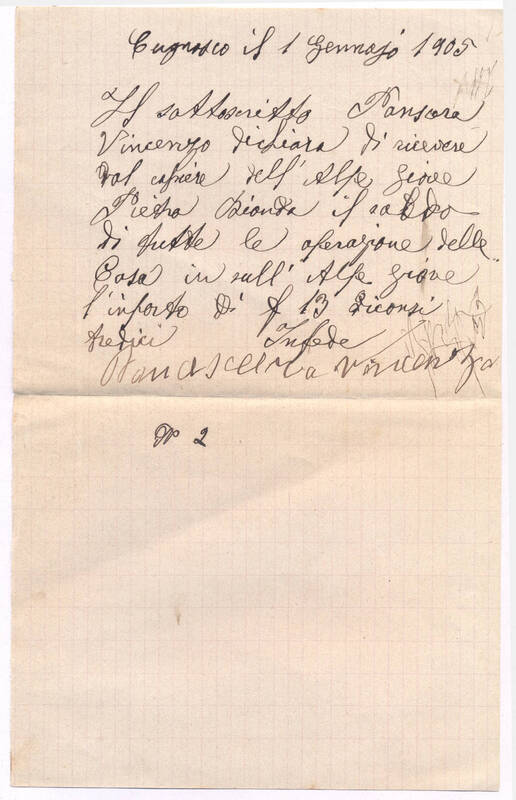 Cugnasco il 1 Gennajo 1905
Il sottoscritto Panscera
Vincenzo dichiara di ricevere
dal casiere dell' Alpe Giove
Pietro Bionda il saldo
di tutte le operazione delle
Casa in sull' Alpe Giove
l'inporto di f 13 diconsi
tredici Infede
Panscera Vincenzo
N° 2